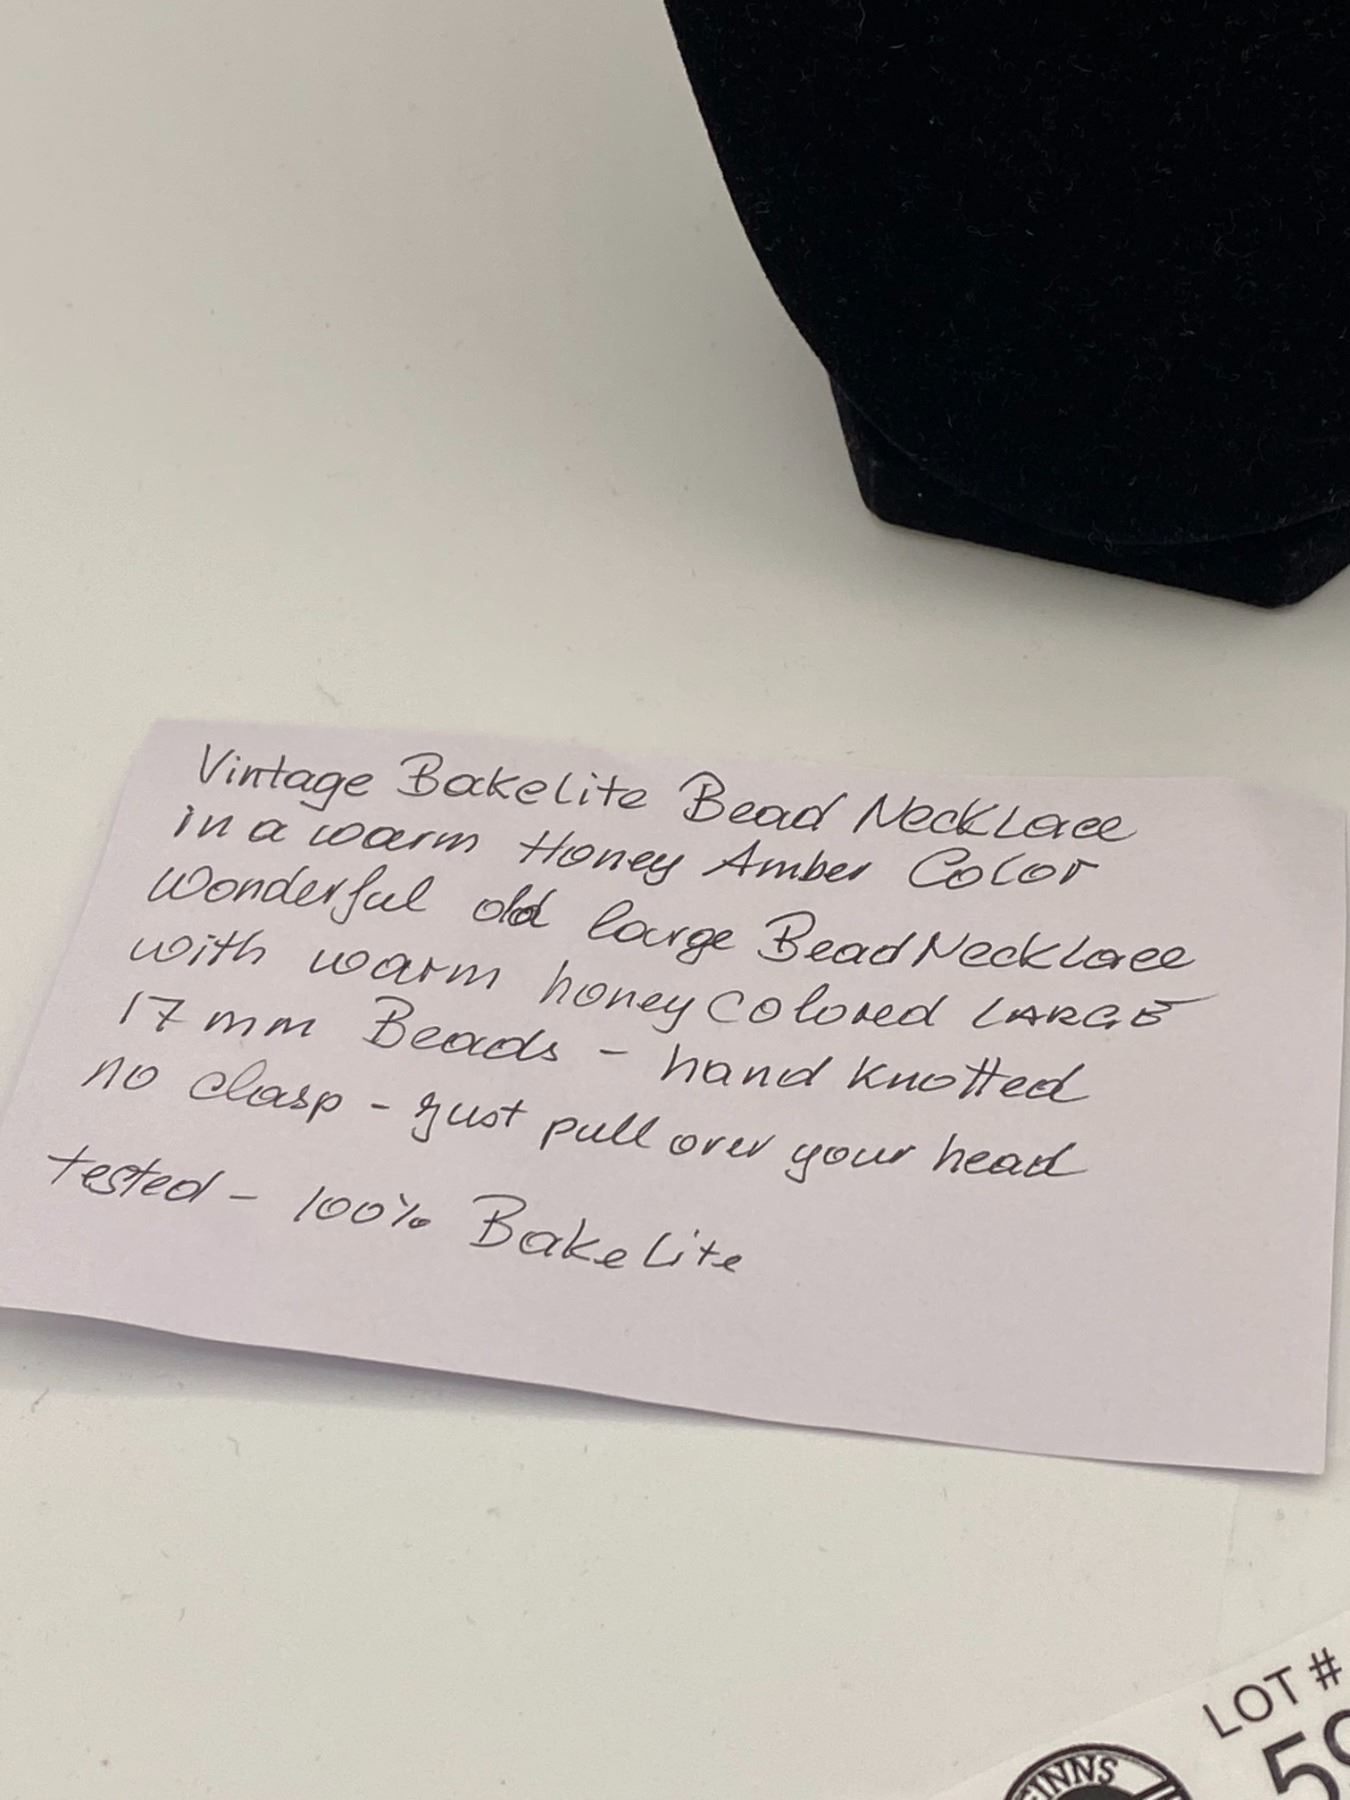 Vintage Bakelite Bead Necklace
in a warm Honey Amber Color
Wonderful old large Bead Necklace
with warm honey colored LARGE
17 mm Beads - hand knotted
no clasp - just pull over your head
tested - 100% Bakelite
LOT #